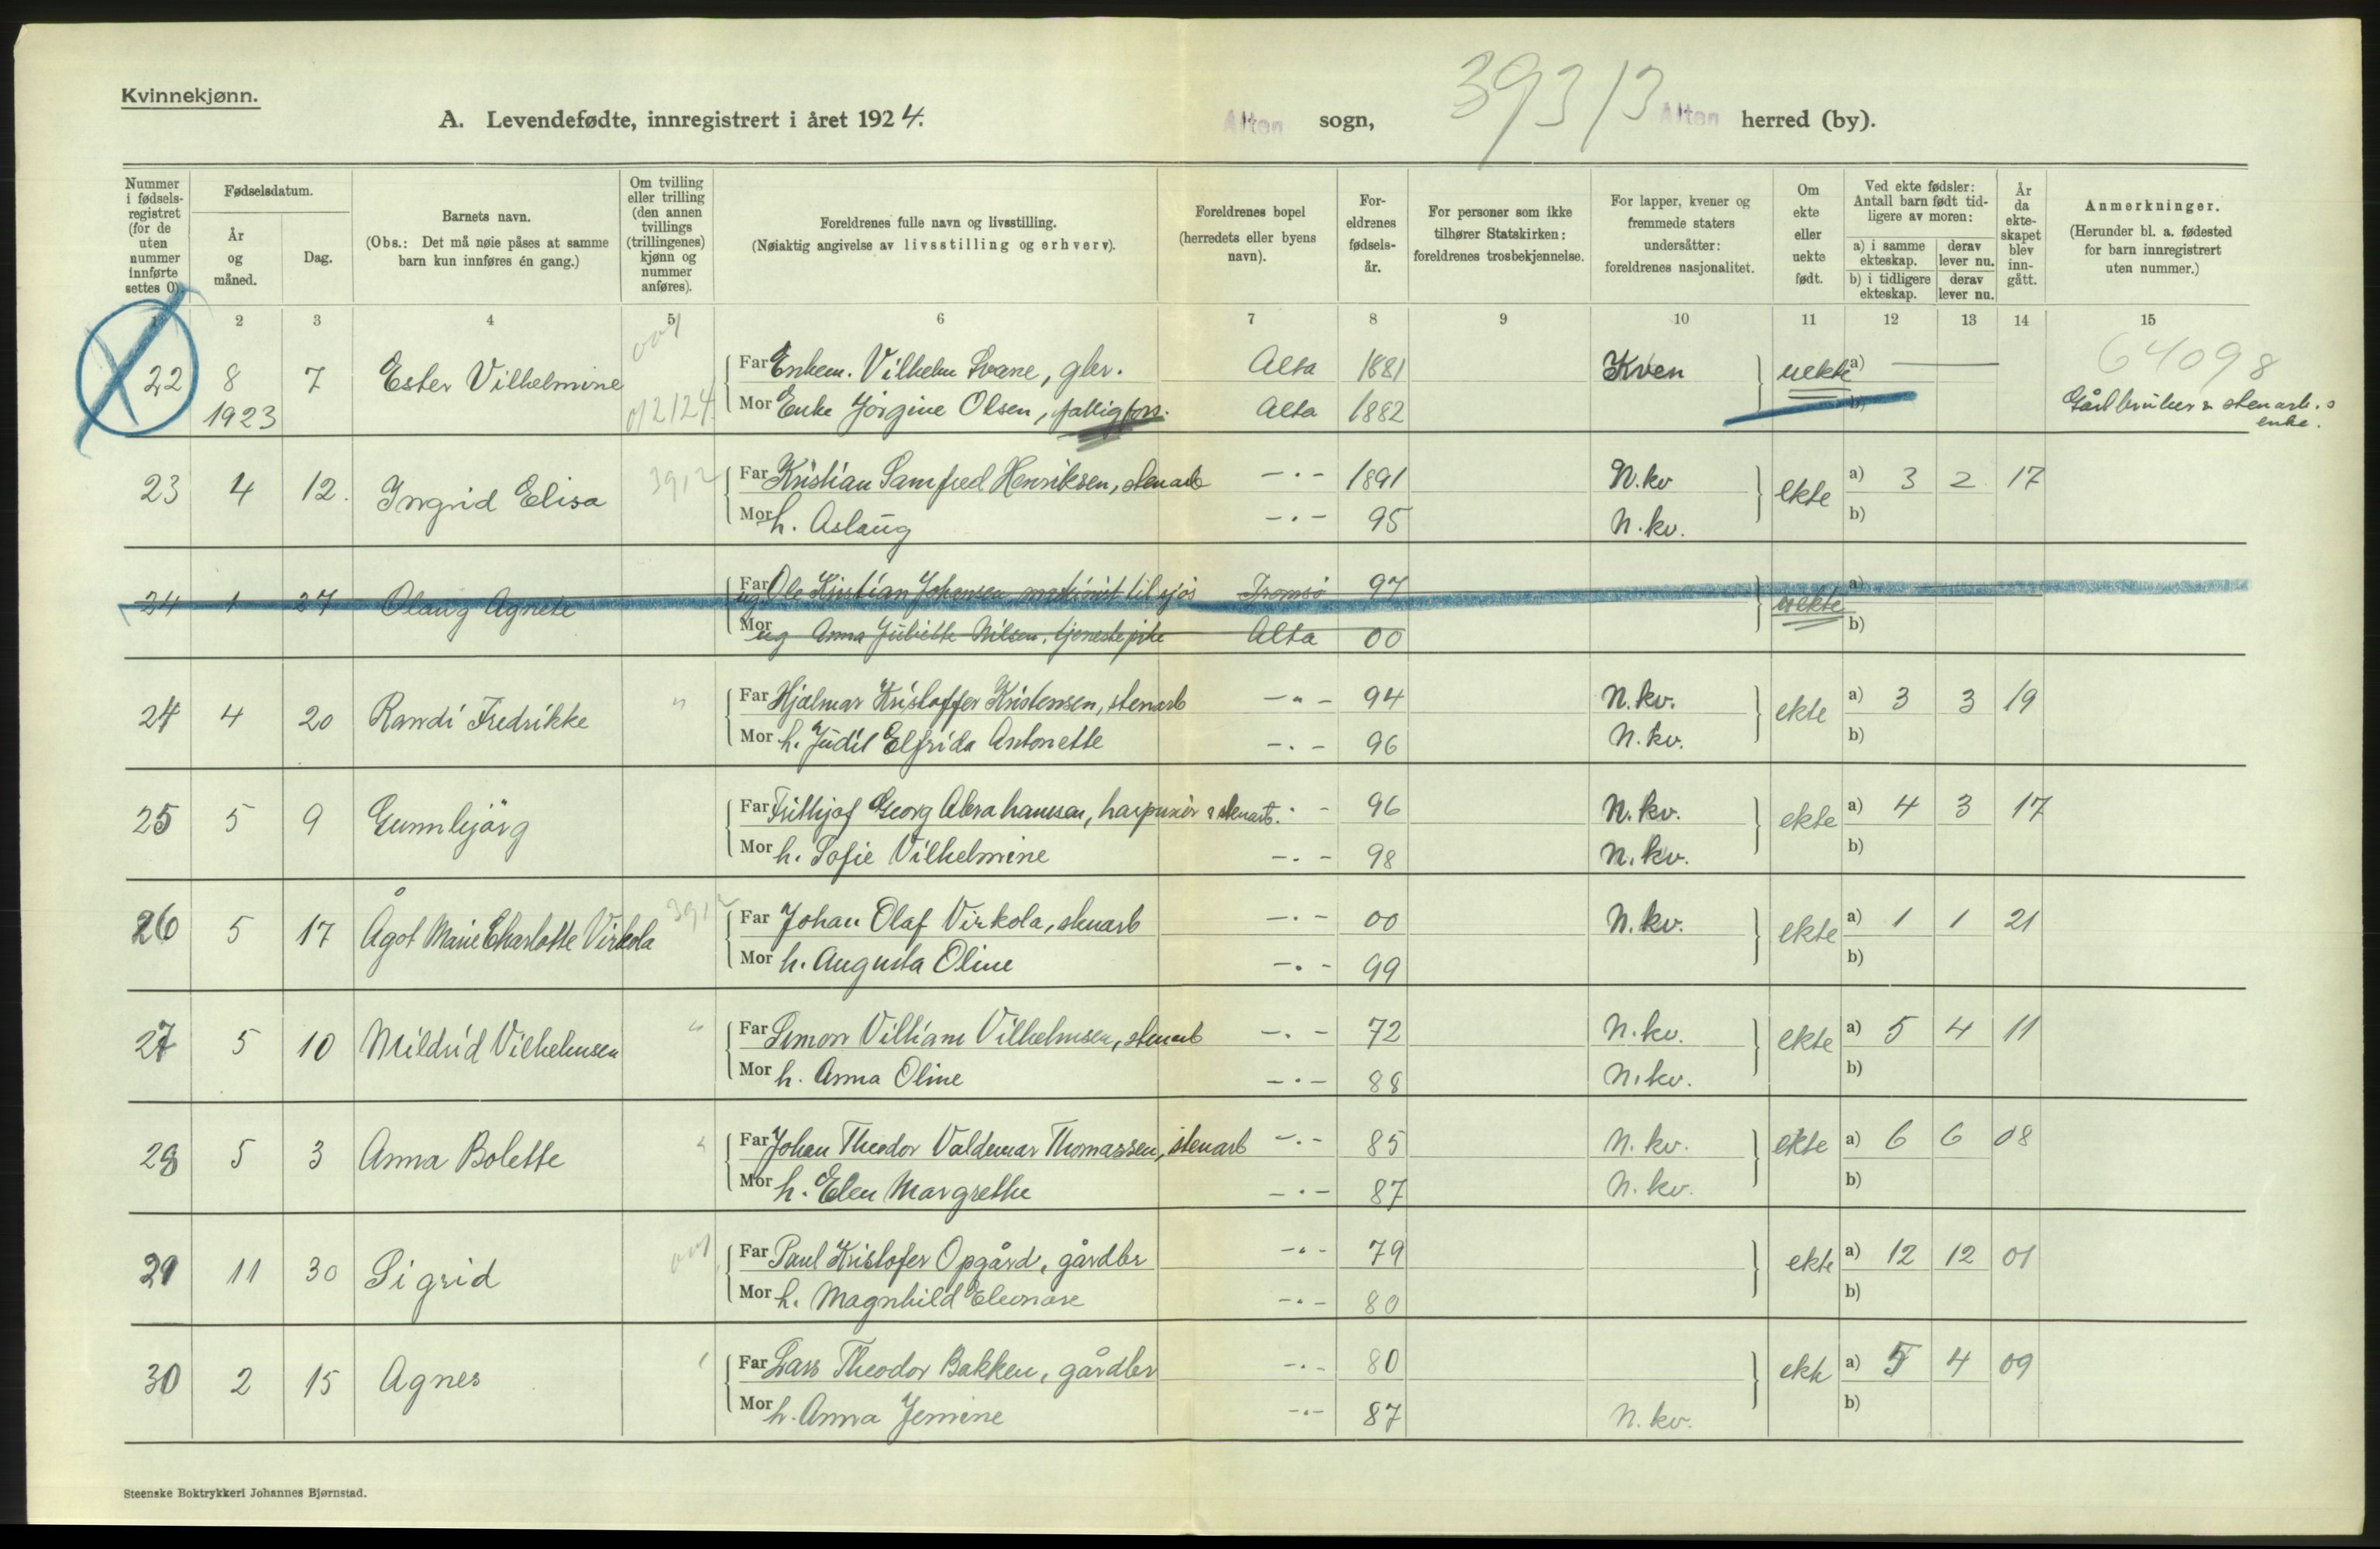 Kvinnekjønn.
A. Levendefødte, innregistrert i året 1924.
Alten sogn,
39313
Alten herred (by).
Nummer
i fødsels-
registret
(for de
uten
nummer
innførte
settes 0).
Fødselsdatum.
År
og
måned.
Dag.
Barnets navn.
(Obs.: Det må nøie påses at samme
barn kun innføres én gang.)
Om tvilling
eller trilling
(den annen
tvillings
(trillingenes)
kjønn og
nummer
anføres).
Foreldrenes fulle navn og livsstilling.
(Nøiaktig angivelse av livsstilling og erhverv).
Foreldrenes bopel
(herredets eller byens
navn).
For-
eldrenes
fødsels-
år.
For personer som ikke
tilhører Statskirken:
foreldrenes trosbekjennelse.
For lapper, kvener og
fremmede staters
undersåtter:
foreldrenes nasjonalitet.
Om
ekte
eller
uekte
født.
Ved ekte fødsler:
Antall barn født tid-
ligere av moren:
a) i samme
ekteskap.
derav
lever nu.
b) i tidligere
ekteskap.
derav
lever nu.
År
da
ekte-
skapet
blev
inn-
gått.
Anmerkninger.
(Herunder bl. a. fødested
for barn innregistrert
uten nummer.)
1 2 3 4 5 6 7 8 9 10 11 12 13 14 15
22 8 7 Ester Vilhelmine Far Enkem. Vilhelm Svane, gbr. Alta 1881 Kven uekte a) 64098
1923 012124 Mor Enke Jörgine Olsen, fattigfors. Alta 1882 b) Gårdbruker & stenarb.s
enke.
23 4 12. Ingrid Elisa 3912 Far Kristian Samfred Henriksen, stenarb —·— 1891 N.kv ekte a) 3 2 17
Mor h. Aslaug —·— 95 N.kv. b)
24 1 27 Olaug Agnete Far ug. Ole Kristian Johansen maskinist til sjös Tromsö 97 uekte a)
Mor ug Anna Juliette Nilsen, tjenestepike Alta 00 b)
24 4 20 Randi Fredrikke " Far Hjalmar Kristoffer Kristensen, stenarb —"— 94 N.kv. ekte a) 3 3 19
Mor h. Judit Elfrida Antonette —·— 96 N.kv. b)
25 5 9 Gunnbjörg Far Frithjof Georg Abrahamsen, harpunér & stenarb. · — 96 N.kv. ekte a) 4 3 17
Mor h. Sofie Vilhelmine —·— 98 N.kv. b)
26 5 17 Ågot Marie Charlotte Virkola 3912 Far Johan Olaf Virkola, stenarb —·— 00 N.kv. ekte a) 1 1 21
Mor h. Augusta Oline —·— 99 b)
27 5 10 Mildrid Vilhelmsen " Far Simon Villiam Vilhelmsen, stenarb —·— 72 N.kv. ekte a) 5 4 11
Mor h. Anna Oline —·— 88 N.kv. b)
28 5 3 Anna Bolette " Far Johan Theodor Valdemar Thomassen, stenarb —·— 85 N.kv. ekte a) 6 6 08
Mor h. Elen Margrethe —·— 87 N.kv. b)
29 11 30 Sigrid Far Paul Kristofer Opgård, gårdbr —"— 79 ekte a) 12 12 01
Mor h. Magnhild Eleonore —·— 80 b)
30 2 15 Agnes Far Lars Theodor Bakken, gårdbr —·— 80 ekte a) 5 4 09
Mor h. Anna Jemine —·— 87 N.kv. b)
Steenske Boktrykkeri Johannes Bjørnstad.